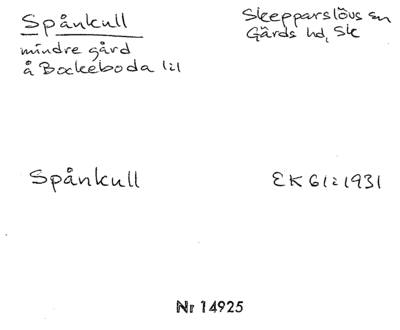 Spånkull
Skepparslövs sn
Gärds hd, Sk
mindre gård
å Bockeboda 1:1
Spånkull
EK 61:1931
Nr 14925